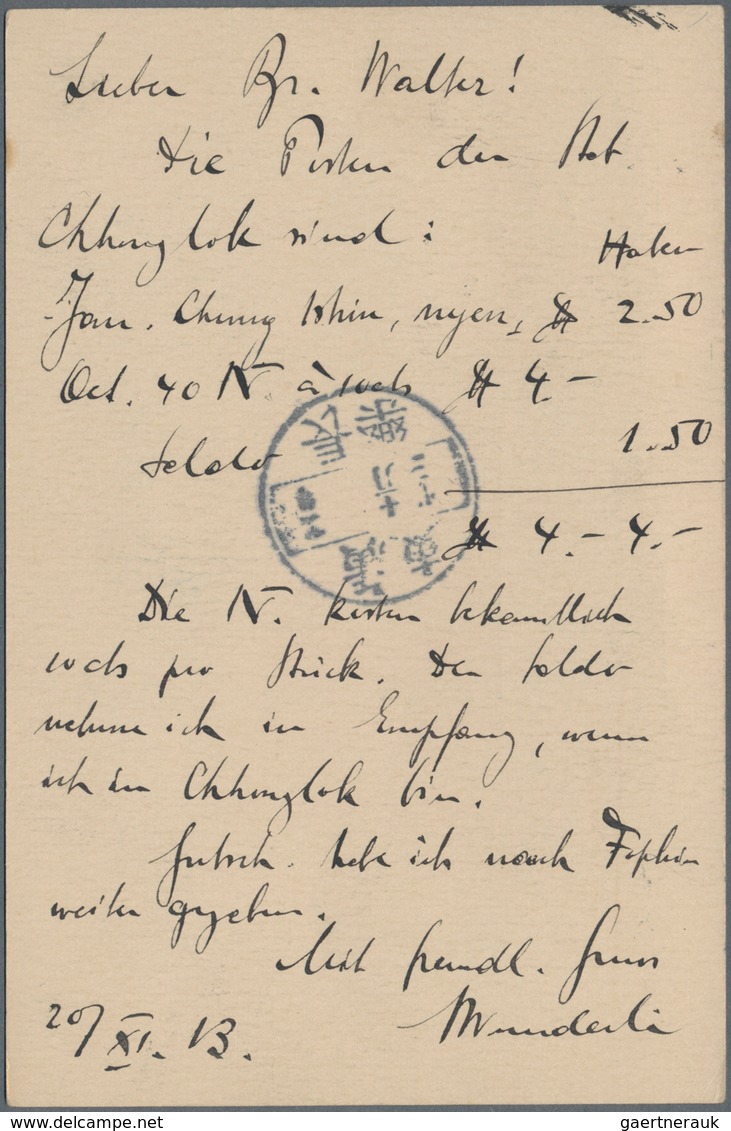 Lieber Br. Walter!
Die Posten der Stat.
Chhonglok sind:
Haben
Jan. Chung nyen, $ 2.50
Oct. 40 N. à 10 cts $ 4.-
Saldo 1.50
$ 4.- 4.-
Die N. kosten bekanntlich
10 cts pro Stück. Den Saldo
nehme ich in Empfang, wenn
ich in Chhonglok bin.
Gutsch. habe ich nach
weiter gegeben.
Mit freundl. Gruss
Wunderli
20/XI. 13.
gaertnerauk